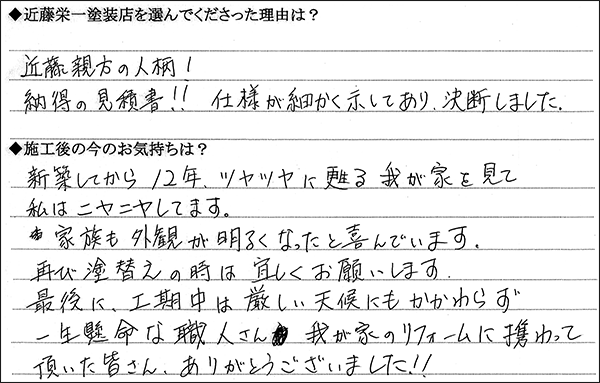 ◆近藤栄一塗装店を選んでくださった理由は？
近藤親方の人柄！
納得の見積書！！ 仕様が細かく示してあり、決断しました。
◆施工後の今のお気持ちは？
新築してから12年、ツヤツヤに甦る我が家を見て
私はニヤニヤしてます。
家族も外観が明るくなったと喜んでいます。
再び塗替えの時は宜しくお願いします。
最後に、工期中は厳しい天候にもかかわらず
一生懸命な職人さん 我が家のリフォームに携わって
頂いた皆さん、ありがとうございました！！